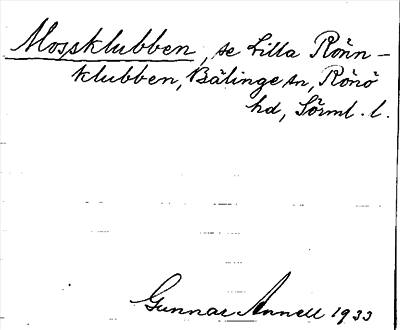 Mossklubben, se Lilla Rönn-
klubben, Bälinge sn, Rönö
hd, Sörml. l.
Gunnar Annell 1933